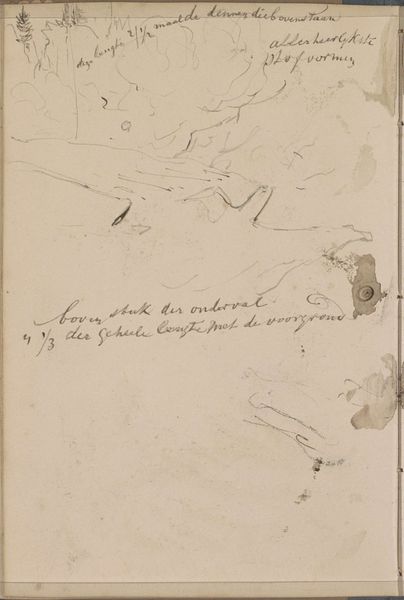 deze lengte 2 1/2 maal de dennen die boven staan
allerheerlijkste
plofvormen
boven stuk der onderval
" 1/3 der geheele lengte met de voorgrond